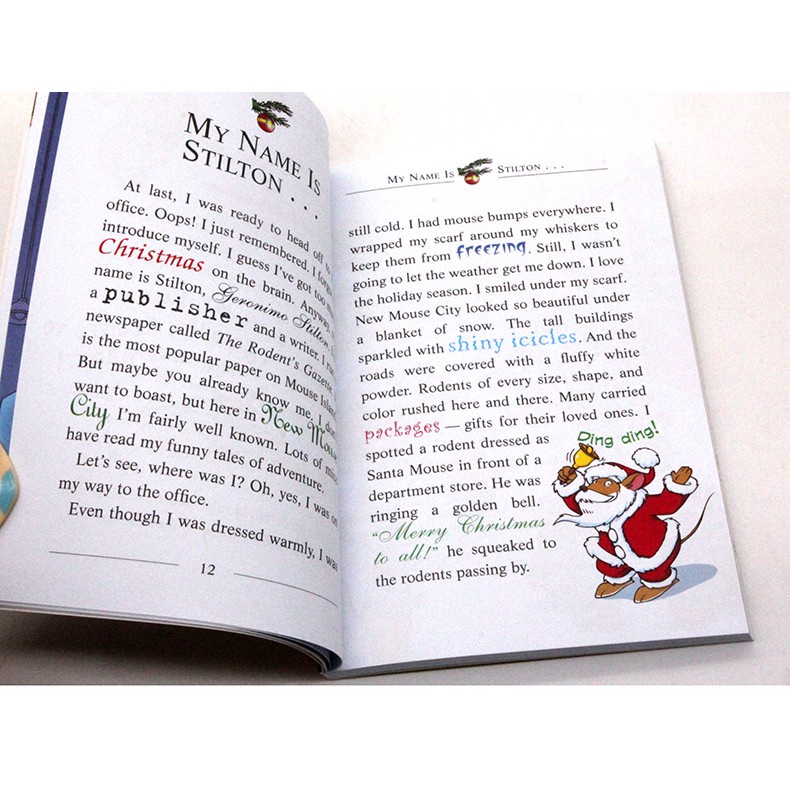 MY NAME IS
STILTON . . .
At last, I was ready to head off to
office. Oops! I just remembered. I forgot
introduce myself. I guess I've got too
Christmas on the brain. Anyway
name is Stilton, Geronimo Stilton.
a publisher and a writer. I
newspaper called The Rodent's Gazette.
is the most popular paper on Mouse Island
But maybe you already know me. I don
want to boast, but here in New Mouse
City I'm fairly well known. Lots of
have read my funny tales of adventure.
Let's see, where was I? Oh, yes, I was on
my way to the office.
Even though I was dressed warmly, I was
12
MY NAME IS STILTON . . .
still cold. I had mouse bumps everywhere. I
wrapped my scarf around my whiskers to
keep them from freezing. Still, I wasn't
going to let the weather get me down. I love
the holiday season. I smiled under my scarf.
New Mouse City looked so beautiful under
a blanket of snow. The tall buildings
sparkled with shiny icicles. And the
roads were covered with a fluffy white
powder. Rodents of every size, shape, and
color rushed here and there. Many carried
packages — gifts for their loved ones. I
spotted a rodent dressed as
Santa Mouse in front of a
department store. He was
ringing a golden bell.
"Merry Christmas
to all!" he squeaked to
the rodents passing by.
Ding ding!